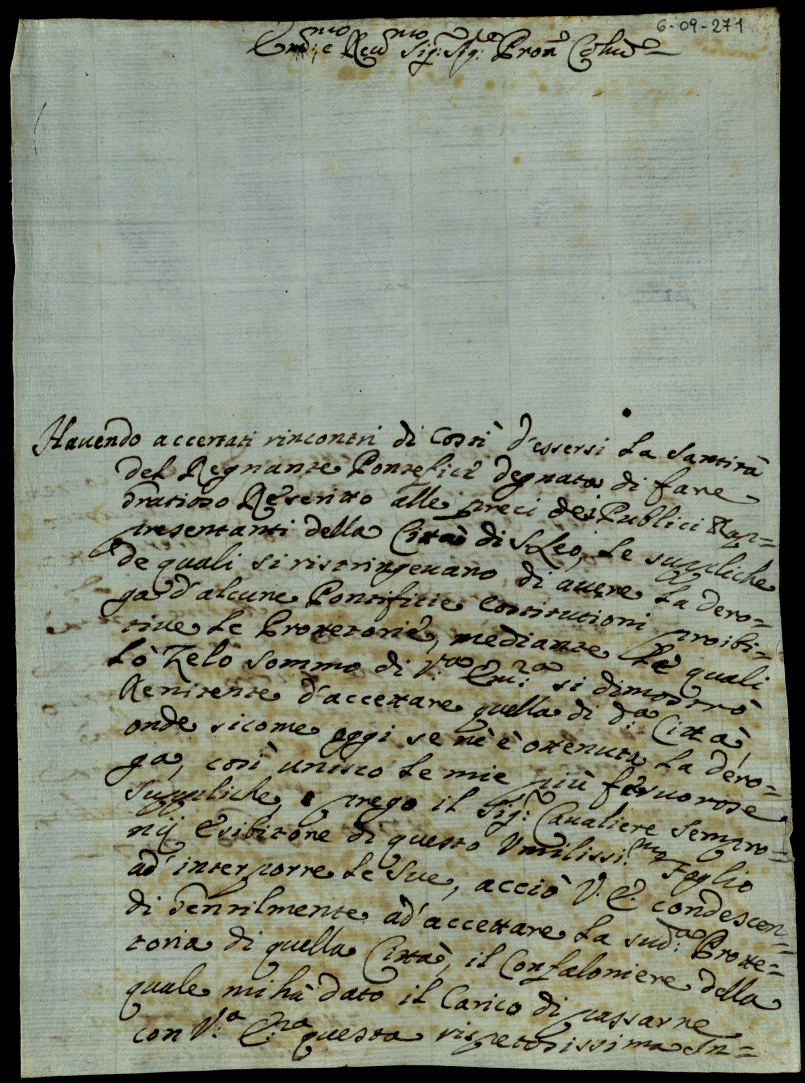 6-09-271
Em̃:mo e Reu:mo Sig:r Sig:r Pron̄ Colnd̃o
Hauendo accertati rincontri di costì d'essersi La Santità
del Regnante Pontefice degnata di fare
Gratioso Rescritto alle preci dei Publici Rap=
presentanti della Città di S. Leo, Le suppliche
de quali si ristringeuano di auere La dero=
ga d'alcune Pontificie Costitutioni proibi=
tiue Le Protettorie, mediante Le quali
Lo Zelo Sommo di V:ra Em:za si dimostrò
Renitente d'accettare quella di d:a Città,
onde sicome oggi se n'è ottenuta La dero=
ga, così unisco Le mie più feruorose
Suppliche, e prego il Sig:r Caualiere Sempro=
nij Esibitore di questo Vmilissi:mo Foglio
ad' interporre Le Sue, acciò V. E. condescen=
di Gentilmente ad' accettare La sud:a Prote=
toria di quella Città, il Confaloniere della
quale mi hà dato il Carico di passarne
con V:a E:za questa rispetosissima In=